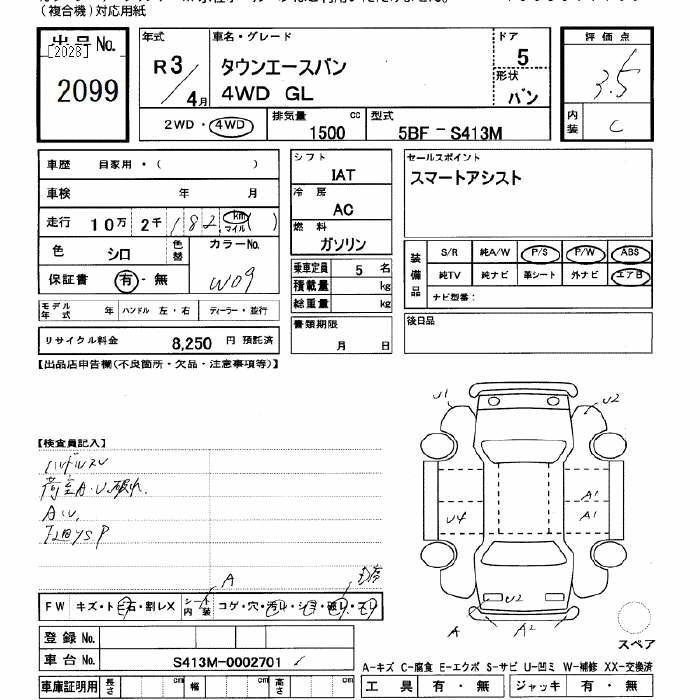 (複合機)対応用紙
出品No.
[2028]
2099
年式
R3/4月
車名・グレード
タウンエースバン
4WD GL
ドア
5
形状
バン
2WD・4WD
排気量
1500 cc
型式
5BF-S413M
評価点
3.5
内装
C
車歴 自家用・( )
車検 年 月
走行 10万 2千 182 km マイル ( )
色 シロ 色替 カラーNo.
W09
保証書 有・無
モデル年式 年 ハンドル 左・右 ディーラー・並行
リサイクル料金 8,250 円 預託済
シフト
IAT
冷房
AC
燃料
ガソリン
乗車定員 5 名
積載量 kg
総重量 kg
書類期限
月 日
セールスポイント
スマートアシスト
装備品
S/R 純A/W P/S P/W ABS
純TV 純ナビ 革シート 外ナビ エアB
ナビ型番:
後日品
【出品店申告欄(不良箇所・欠品・注意事項等)】
【検査員記入】
ハンドルスレ
荷室A・U、破れ.
A・U,
U1
U2
A1
U4
A1
U2
A
A2
スペア
A
FW キズ・トビ石・割レX シート内装 コゲ・穴・汚レ・シミ・破レ・スレ
登録No.
車台No. S413M-0002701
車庫証明用 長さ cm 幅 cm 高さ cm
A-キズ C-腐食 E-エクボ S-サビ U-凹ミ W-補修 XX-交換済
工具 有・無 ジャッキ 有・無